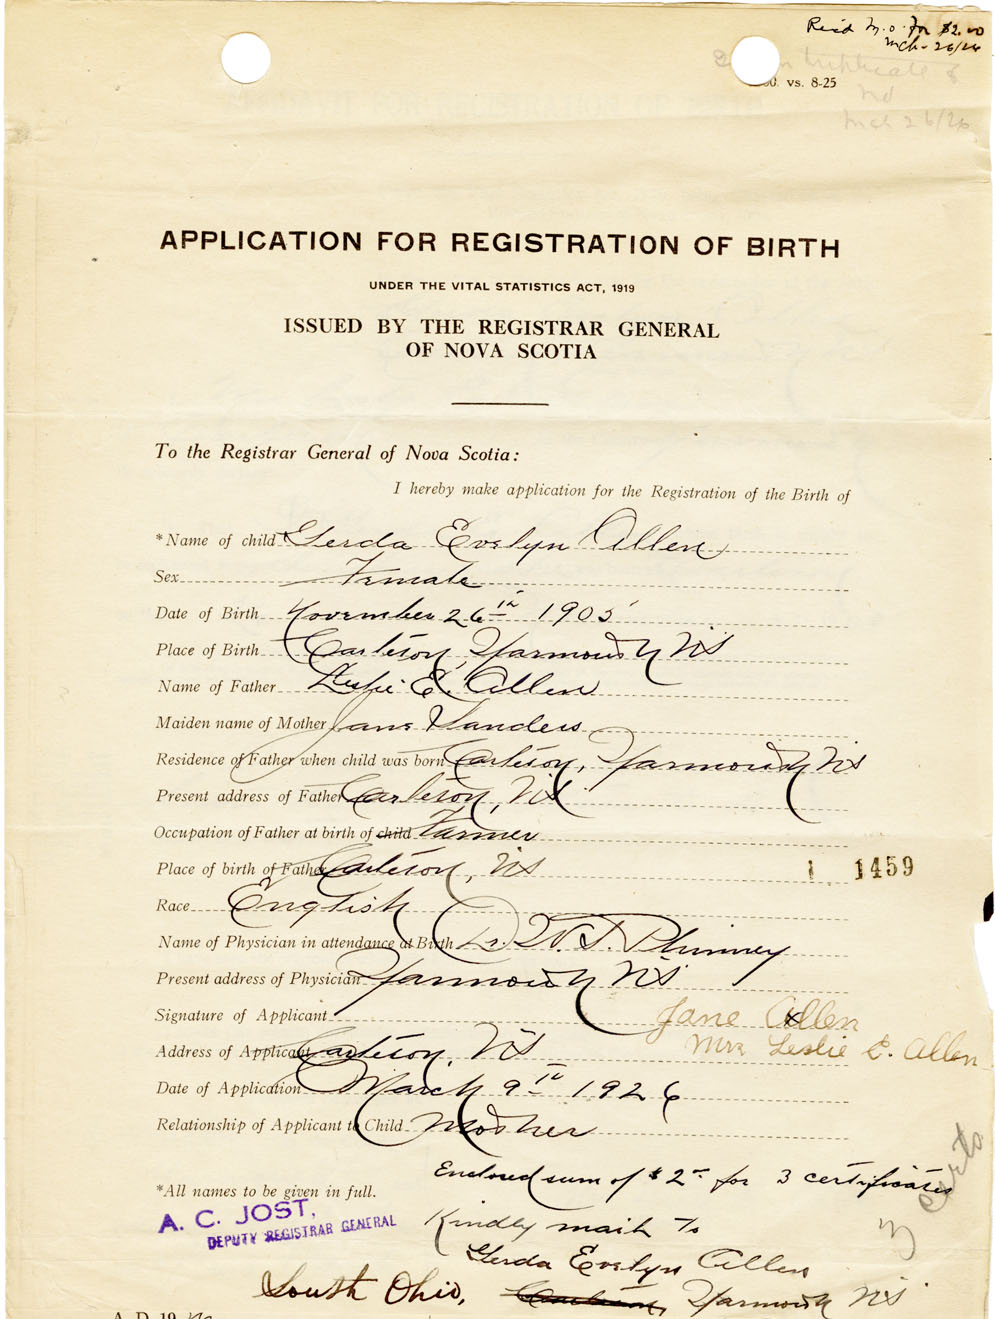 Rec'd M.O. for $2.00
Mch-26/26
vs. 8-25
Mch 26/26
APPLICATION FOR REGISTRATION OF BIRTH
UNDER THE VITAL STATISTICS ACT, 1919
ISSUED BY THE REGISTRAR GENERAL
OF NOVA SCOTIA
To the Registrar General of Nova Scotia:
I hereby make application for the Registration of the Birth of
*Name of child Gerda Evelyn Allen
Sex Female
Date of Birth November 26th 1905
Place of Birth Carleton, Yarmouth NS
Name of Father Leslie E. Allen
Maiden name of Mother Jane Sanders
Residence of Father when child was born Carleton, Yarmouth NS
Present address of Father Carleton, NS
Occupation of Father at birth of child Farmer
Place of birth of Father Carleton, NS
1 1459
Race English
Name of Physician in attendance at Birth Dr. W. T. Phinney
Present address of Physician Yarmouth NS
Signature of Applicant Jane Allen
Mrs Leslie E. Allen
Address of Applicant Carleton, NS
Date of Application March 9th 1926
Relationship of Applicant to Child Mother
Enclosed sum of $2 - for 3 certificates
*All names to be given in full.
A. C. JOST,
DEPUTY REGISTRAR GENERAL
Kindly mail to
Gerda Evelyn Allen
South Ohio, Carleton, Yarmouth NS
3 certs
A. D. 19